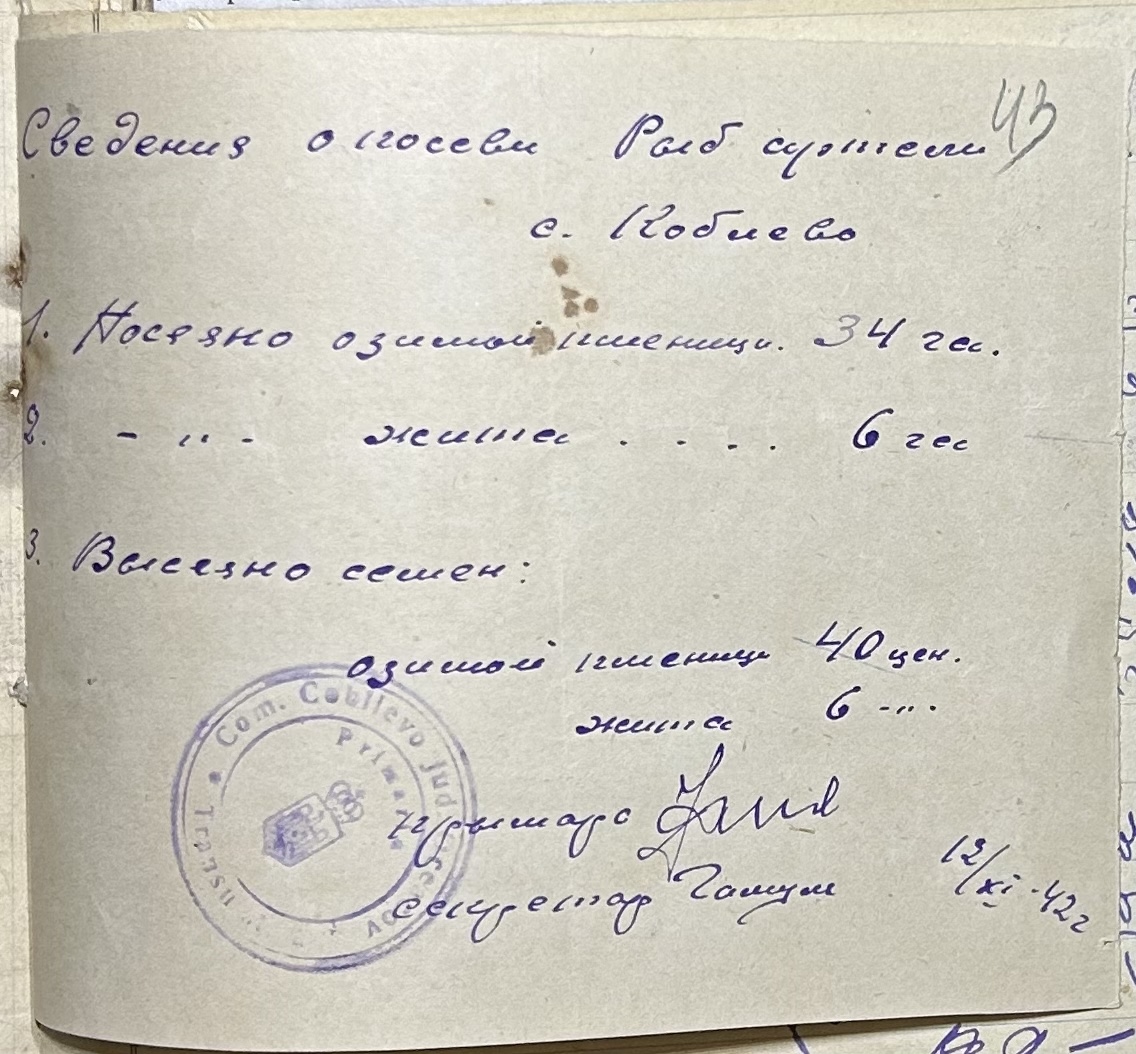 43
Сведения о посеви Рыб артели
с. Коблево
1. Посеяно озимой пшеници. 34 га.
2. - " - жита . . . . 6 га
3. Высеяно семен:
озимой пшеници 40 цен.
жита 6 -"-.
Com. Cobllevo Jud.
Primaria
прымарь
секретар
12/XI-42г